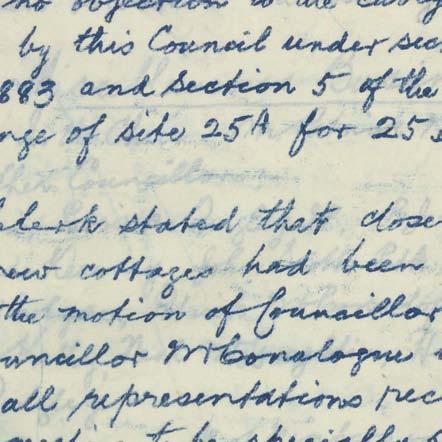 no objection to the
by this Council under sec
883 and section 5 of the
nge of site 25A for 25
Clerk stated that close
new cottages had been
the motion of Councillor
uncillor McGonalogue
all representations rec
to be specially